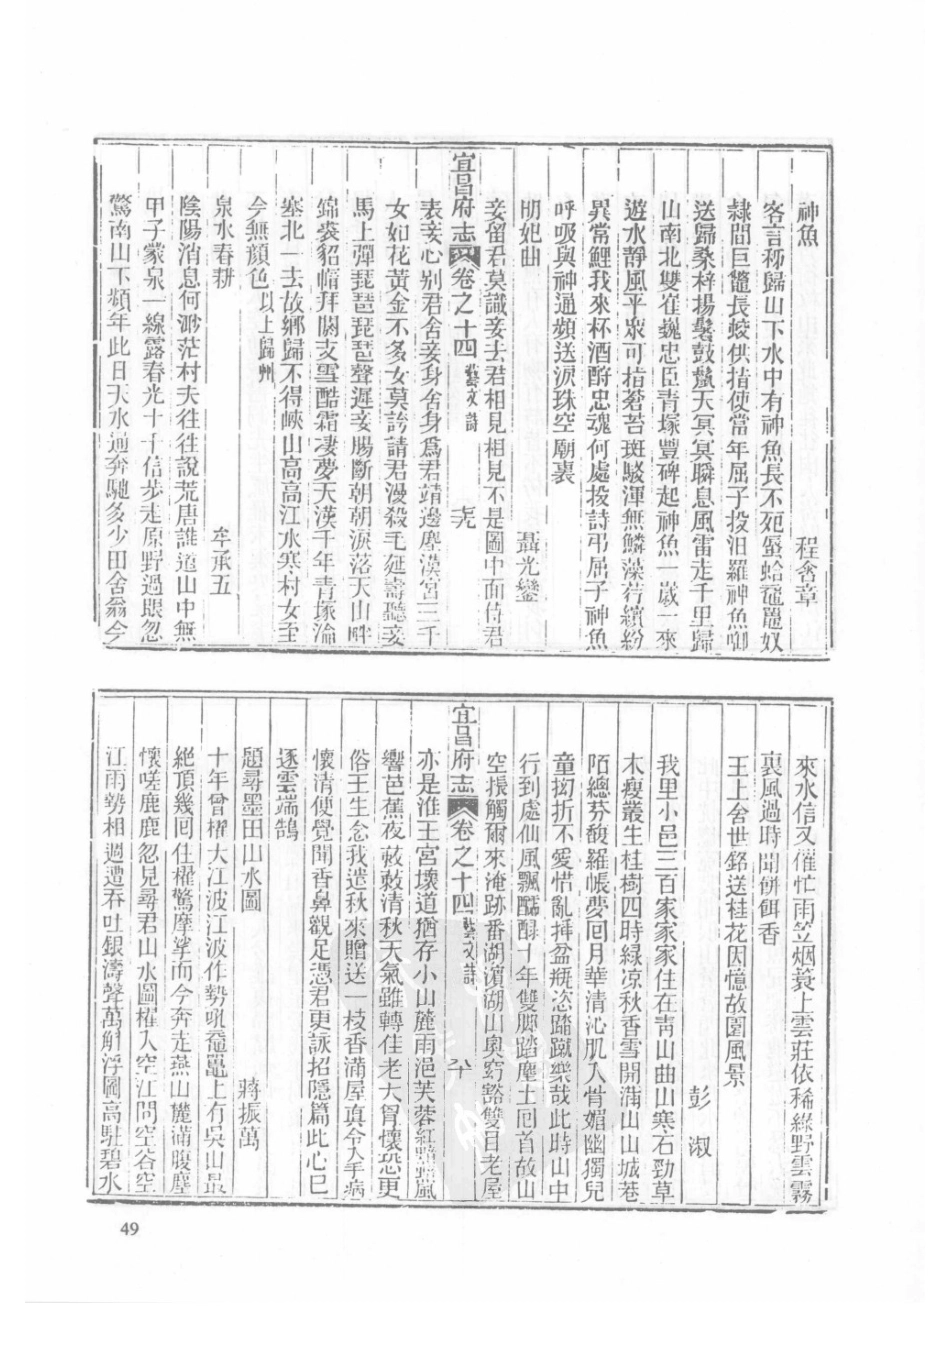 神魚　程含章
客言秭歸山下水中有神魚長不死蜃蛤黿鼉奴
隸間巨鼇長蛟供指使當年屈子投汨羅神魚啣
送歸桑梓揚鬐鼓鬣天冥冥瞬息風雷走千里歸
山南北雙崔巍忠臣青塚豐碑起神魚一歲一來
遊水靜風平衆可指蒼苔斑駁渾無鱗藻荇繽紛
異常鯉我來杯酒酹忠魂何處投詩弔屈子神魚
呼吸與神通頻送淚珠空廟裏
明妃曲　聶光鑾
妾留君莫識妾去君相見相見不是圖中面侍君
宜昌府志　卷之十四　藝文詩
表妾心别君舍妾身舍身爲君靖邊塵漢宮三千
女如花黃金不多女莫誇請君漫殺毛延壽聽妾
馬上彈琵琶琵琶聲遲妾腸斷朝朝淚落天山畔
錦裘貂帽拜閼支雪酷霜凄夢天漢千年青塚淪
塞北一去故鄉歸不得峽山高高江水寒村女至
今無顏色以上歸州
泉水春耕　牟承五
陰陽消息何渺茫村夫往往說荒唐誰道山中無
甲子蒙泉一線露春光十千信步走原野過眼忽
驚南山下頻年此日天水通奔馳多少田舍翁今
來水信又催忙雨笠烟蓑上雲莊依稀綠野雲霧
裏風過時聞餅餌香
王上舍世銘送桂花因憶故園風景
彭淑
我里小邑三百家家家住在青山曲山寒石勁草
木瘦叢生桂樹四時綠凉秋香雪開滿山山城巷
陌總芬馥羅帳夢回月華清沁肌入骨媚幽獨兒
童拗折不愛惜亂揷盆瓶恣踏蹴樂哉此時山中
行到處仙風飄醽醁十年雙脚踏塵土回首故山
空振觸爾來淹跡番湖濱湖山奧窈豁雙目老屋
宜昌府志　卷之十四　藝文詩　六十
亦是淮王宮壞道猶存小山麓雨浥芙蓉紅豔嵐
響芭蕉夜蔌蔌清秋天氣雖轉佳老大胷懷恐更
俗王生念我遣秋來贈送一枝香滿屋眞令手病
懷清便覺聞香鼻觀足憑君更詠招隱篇此心已
逐雲端鵠
題尋墨田山水圖　蔣振萬
十年曾櫂大江波江波作勢吼黿鼉上有吳山最
絕頂幾回住櫂驚摩挲而今奔走燕山麓滿腹塵
懷嗟鹿鹿忽見尋君山水圖櫂入空江問空谷空
江雨勢相週遭吞吐銀濤聲萬斛浮圖高駐碧水
49